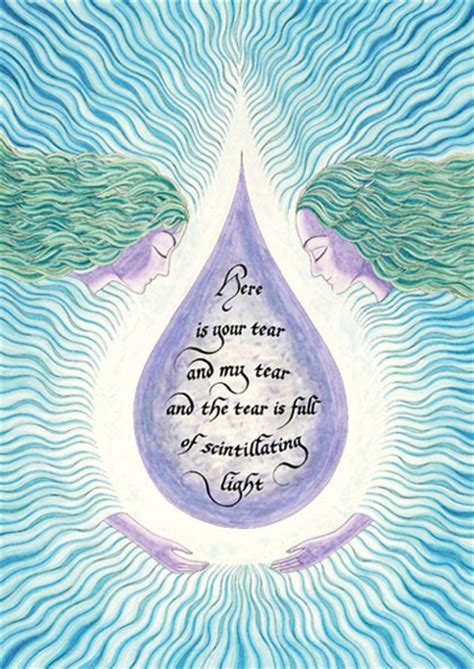 Here
is your tear
and my tear
and the tear is full
of scintillating
light